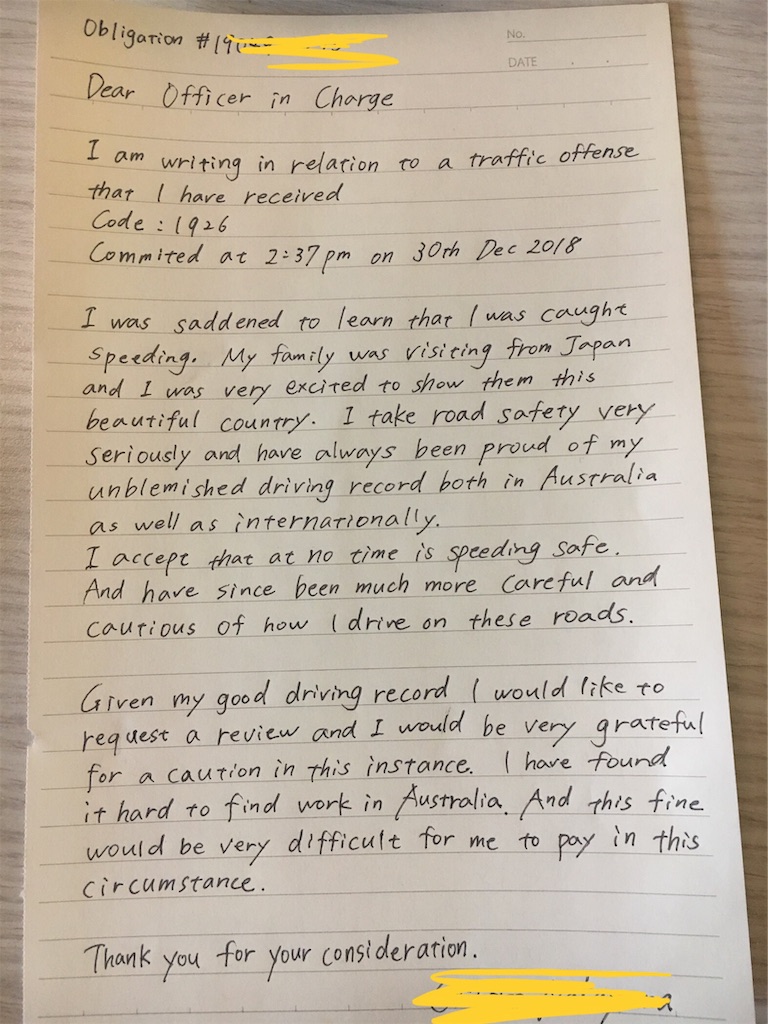 Obligation #19
No.
DATE
Dear Officer in Charge
I am writing in relation to a traffic offense
that I have received
Code : 1926
Commited at 2:37pm on 30th Dec 2018
I was saddened to learn that I was caught
speeding. My family was visiting from Japan
and I was very excited to show them this
beautiful country. I take road safety very
seriously and have always been proud of my
unblemished driving record both in Australia
as well as internationally.
I accept that at no time is speeding safe.
And have since been much more careful and
cautious of how I drive on these roads.
Given my good driving record I would like to
request a review and I would be very grateful
for a caution in this instance. I have found
it hard to find work in Australia. And this fine
would be very difficult for me to pay in this
circumstance.
Thank you for your consideration.